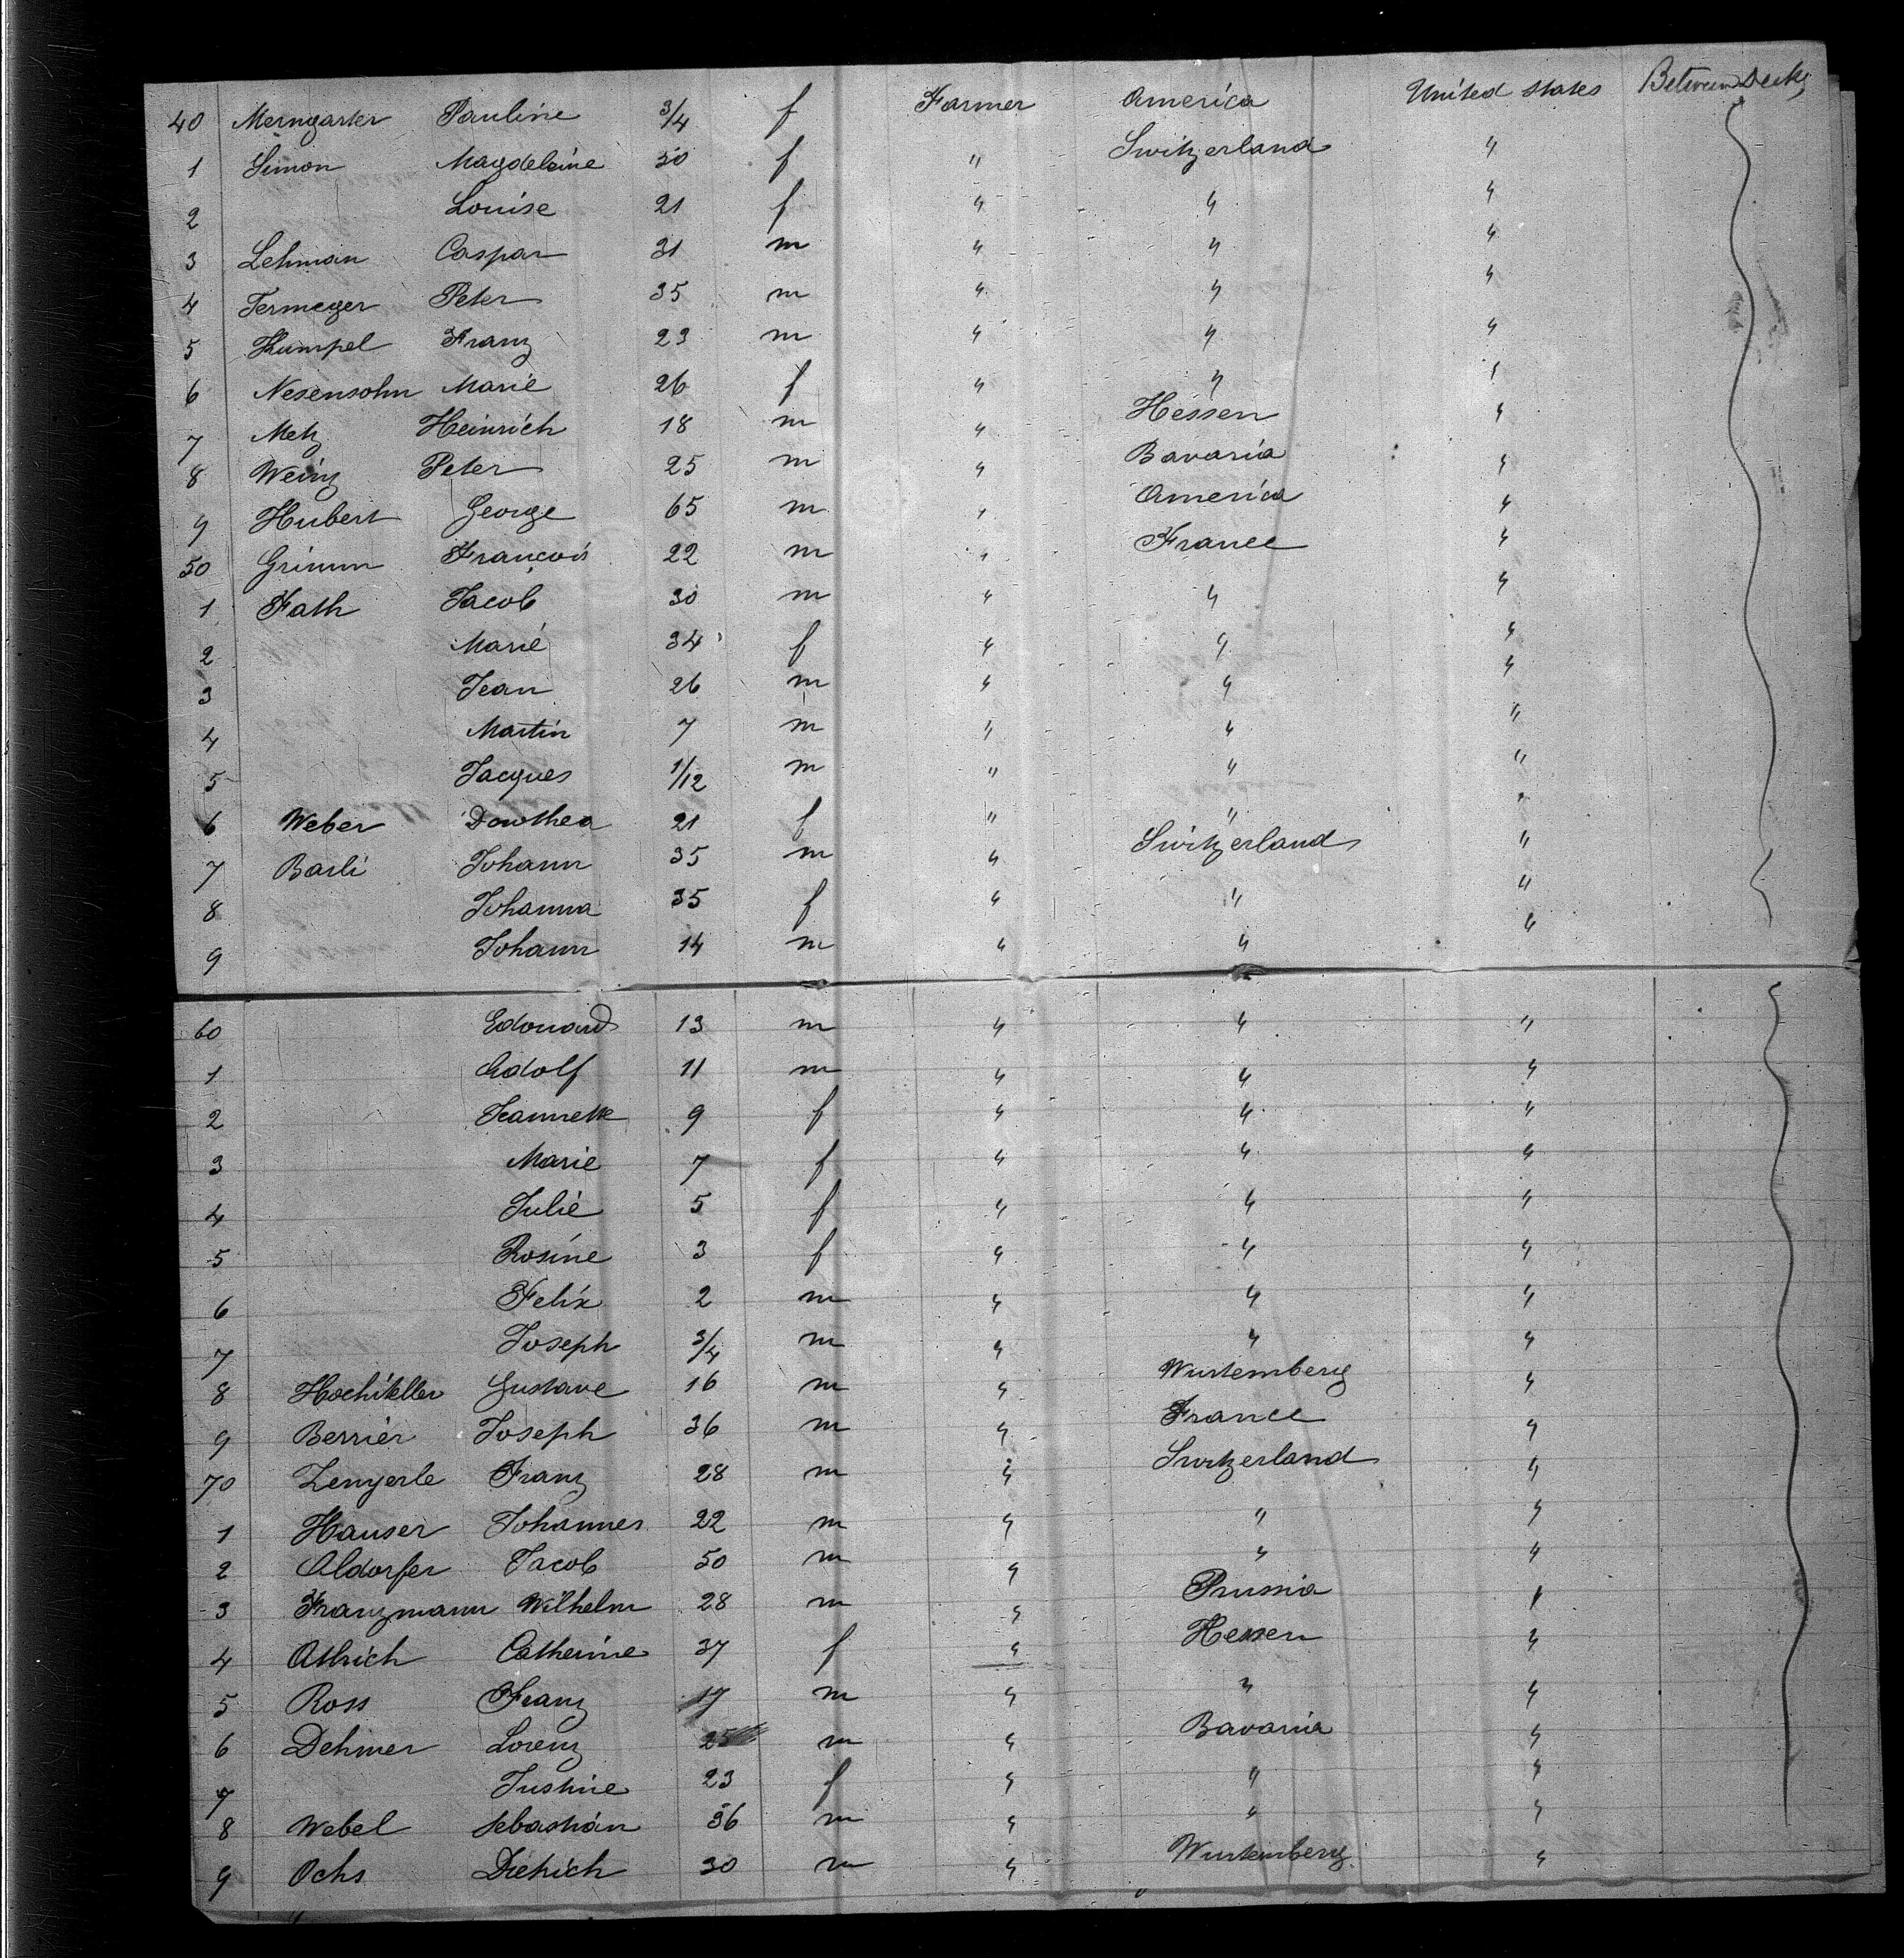 40 Merngarter Pauline 3/4 f Farmer America United States Between Decks
1 Simon Magdeleine 30 f " Switzerland "
2 Louise 21 f " " "
3 Lehman Caspar 31 m " " "
4 Termeger Peter 35 m " " "
5 Kumpel Franz 23 m " " "
6 Nesensohn Marie 26 f " " "
7 Metz Heinrich 18 m " Hessen "
8 Weinz Peter 25 m " Bavaria "
9 Hubert George 65 m " America "
50 Grimm François 22 m " France "
1 Fath Jacob 30 m " " "
2 Marie 34 f " " "
3 Jean 26 m " " "
4 Martin 7 m " " "
5 Jacques 1/12 m " " "
6 Weber Dorothea 21 f " " "
7 Barli Johann 35 m " Switzerland "
8 Johanna 35 f " " "
9 Johann 14 m " " "
60 Edouard 13 m " " "
1 Adolf 11 m " " "
2 Jeannette 9 f " " "
3 Marie 7 f " " "
4 Julie 5 f " " "
5 Rosine 3 f " " "
6 Felix 2 m " " "
7 Joseph 3/4 m " " "
8 Gustave 16 m " Wurtemberg "
9 Berrier Joseph 36 m " France "
70 Zengerle Franz 28 m " Switzerland "
1 Hauser Johannes 22 m " " "
2 Aldorfer Jacob 50 m " " "
3 Franzmann Wilhelm 28 m " Prussia "
4 Attrich Catherine 37 f " Hessen "
5 Ross Franz 17 m " " "
6 Dehmer Lorenz 25 m " Bavaria "
7 Justine 23 f " " "
8 Webel Sebastian 36 m " " "
9 Ochs Dietrich 30 m " Wurtemberg "